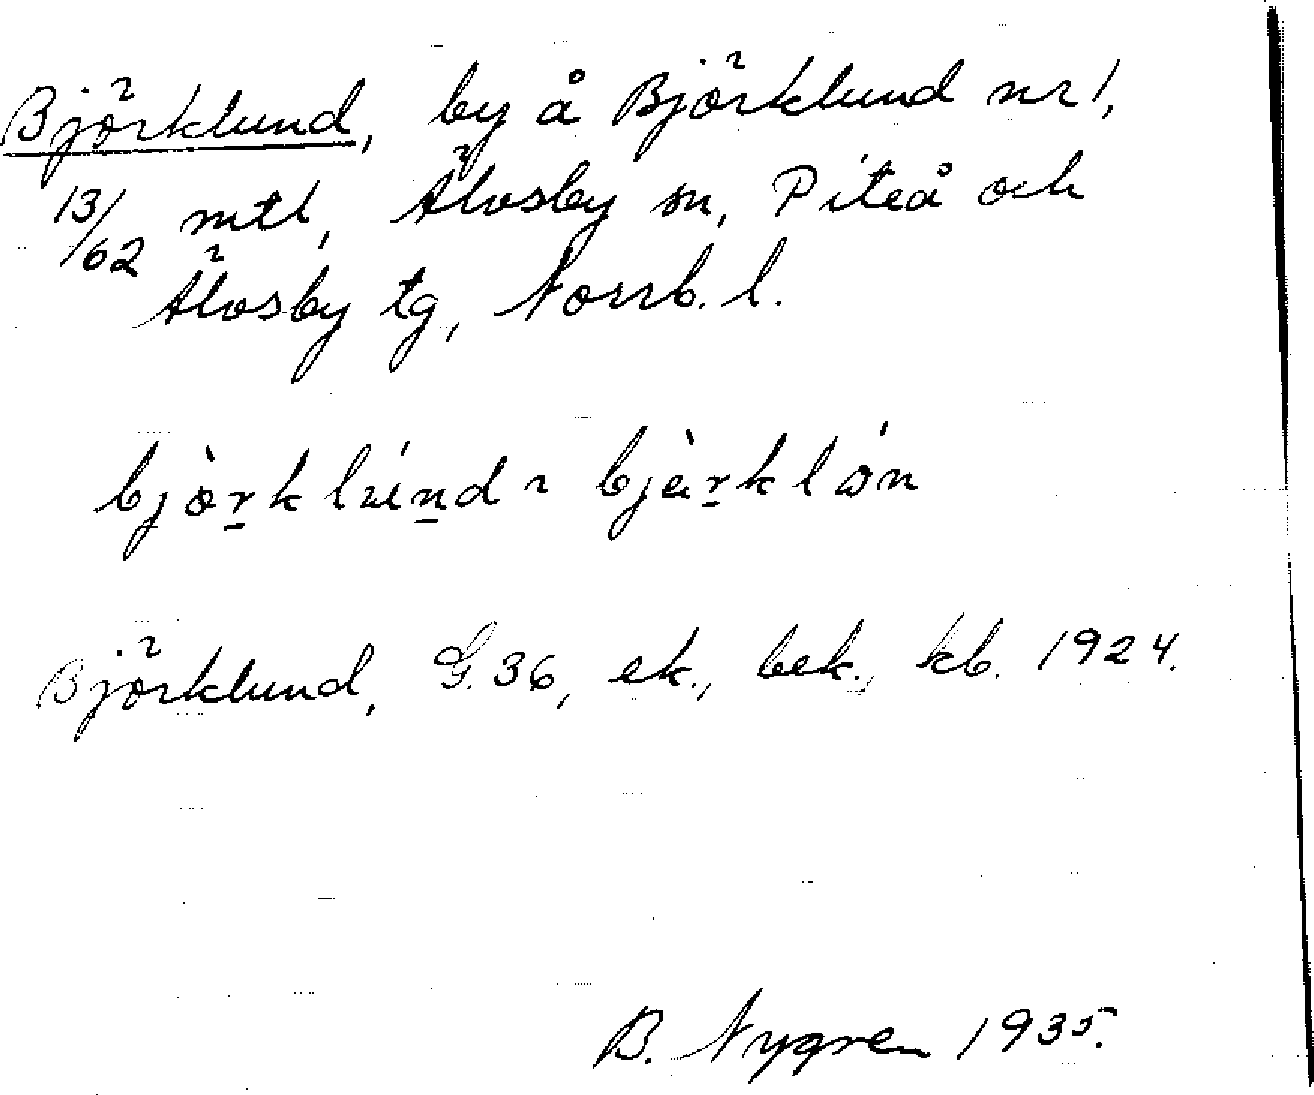 Björklund, by å Björklund nr 1,
13/62 mtl, Älvsby sn, Piteå och
Älvsby tg, Norrb. l.
bjòrklúnd ~ bjèrklón
Björklund, G. 36, ek., bek., kb. 1924.
B. Nygren 1935.